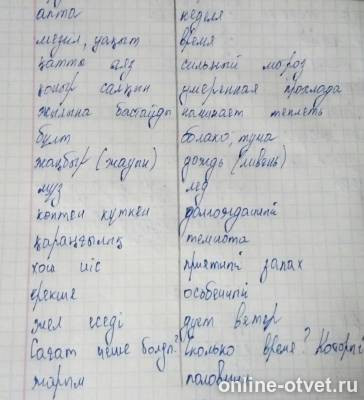 апта неделя
мезгіл, уақыт время
қатты аяз сильный мороз
қоңыр салқын умеренная прохлада
жылына бастайды начинает теплеть
бұлт облако, туча
жаңбыр (жауын) дождь (ливень)
мұз лед
көптен күткен долгожданный
қараңғылық темнота
хош иіс приятный запах
ерекше особенный
жел еседі дует ветер
Сағат неше болды? Сколько время? Который
жарым половина
online-otvet.ru